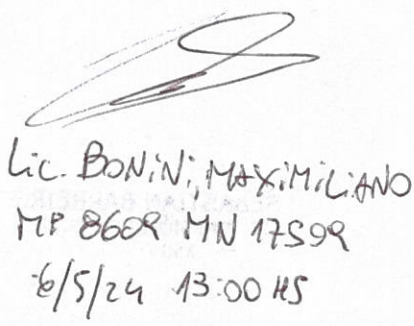 Lic. BONINI, MAXIMILIANO
MP 8609 MN 17599
6/5/24 13:00 HS